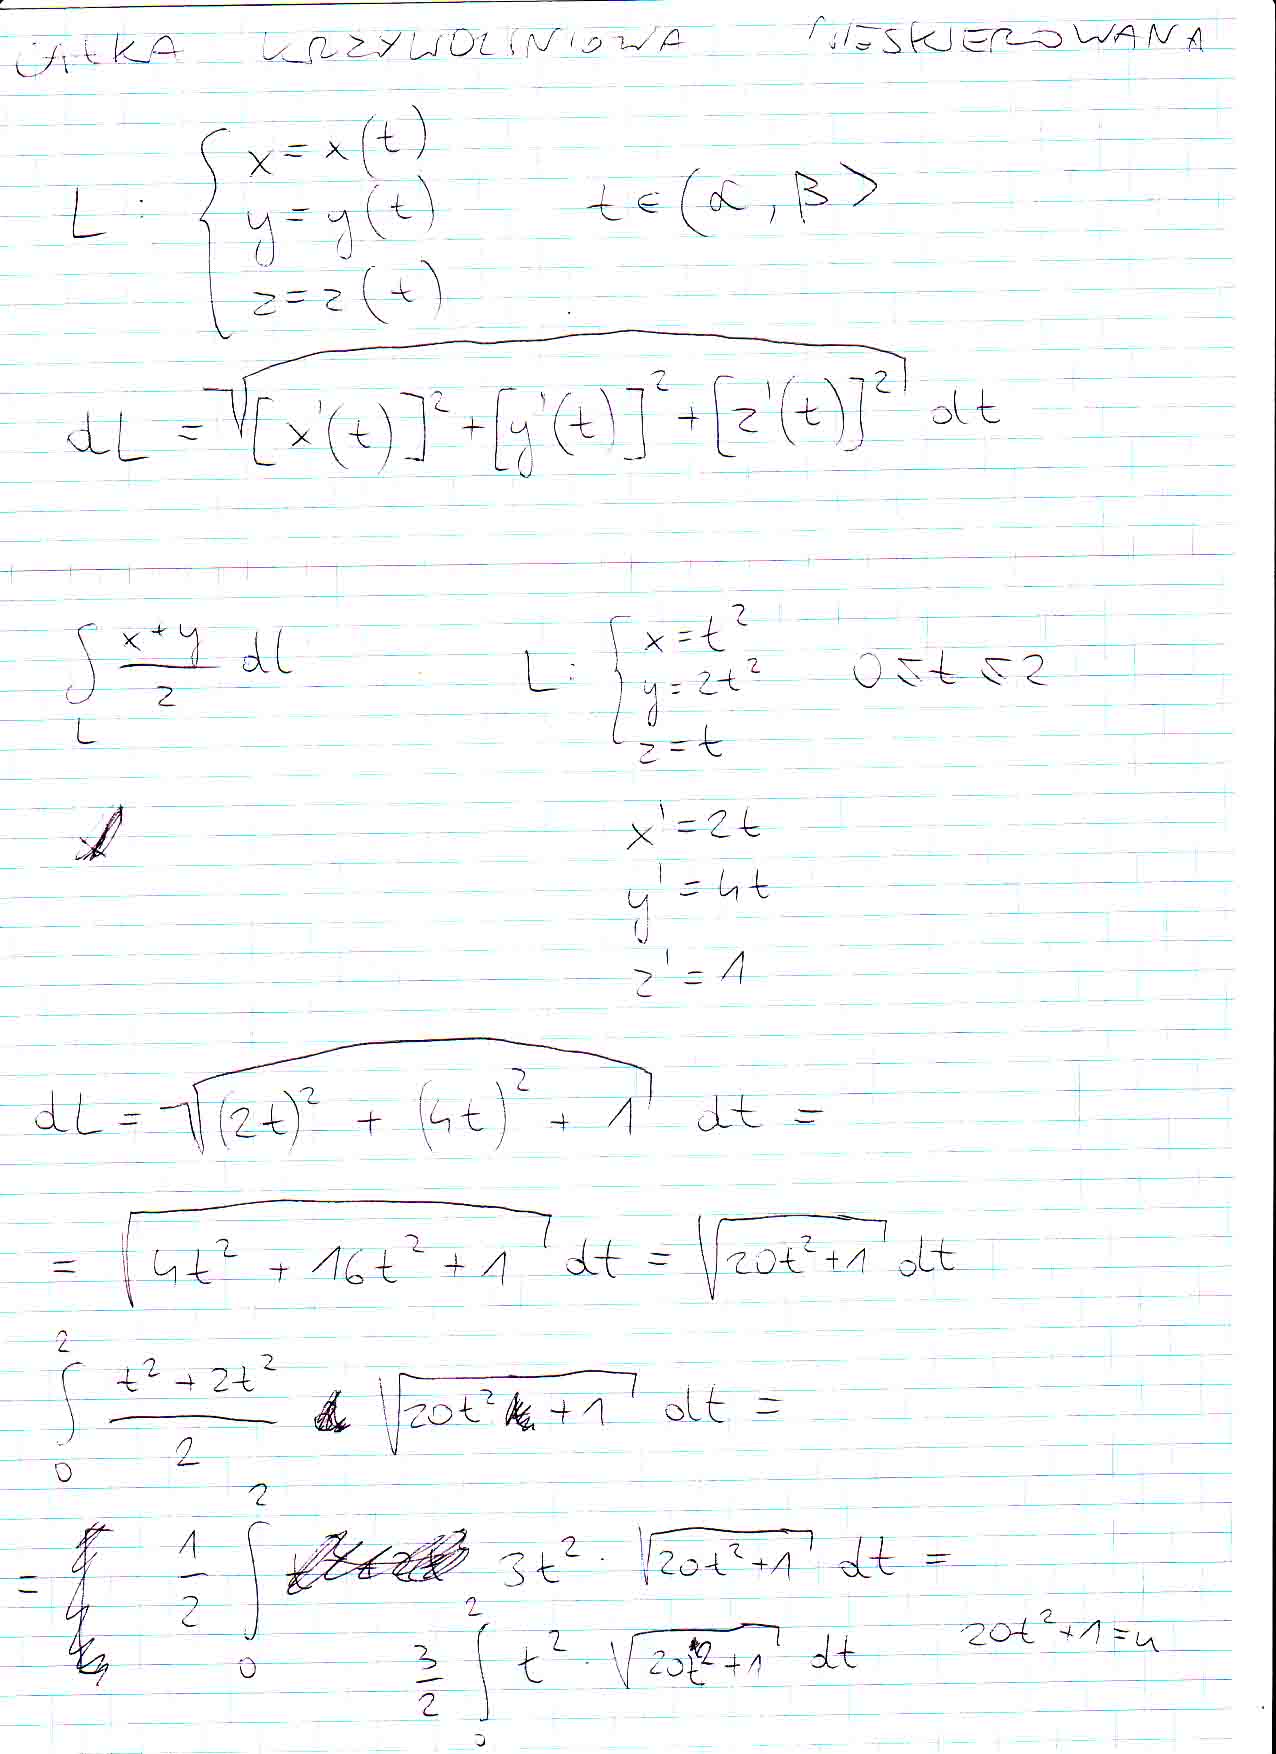 CAŁKA KRZYWOLINIOWA NIESKIEROWANA
L: { x = x(t)
y = y(t) t ∈ (α, β>
z = z(t)
dL = √([x'(t)]² + [y'(t)]² + [z'(t)]²) dt
∫_L (x+y)/z dl L: { x = t²
y = 2t² 0 ≤ t ≤ 2
z = t
x' = 2t
y' = 4t
z' = 1
dL = √((2t)² + (4t)² + 1) dt =
= √(4t² + 16t² + 1) dt = √(20t² + 1) dt
∫₀² (t² + 2t²)/2 √(20t² + 1) dt =
= 1/2 ∫₀² 3t² · √(20t² + 1) dt =
3/2 ∫₀² t² · √(20t² + 1) dt 20t² + 1 = u